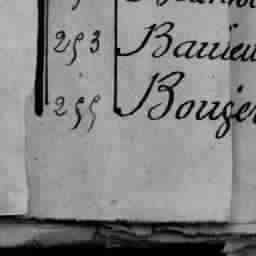 253 Bauieu
255 Bouge